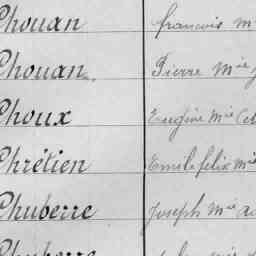 Chouan françois m
Chouan Pierre mie
Choux Eugène mie
Chrétien Emile félix mie
Chuberre Joseph mie
Chuberre